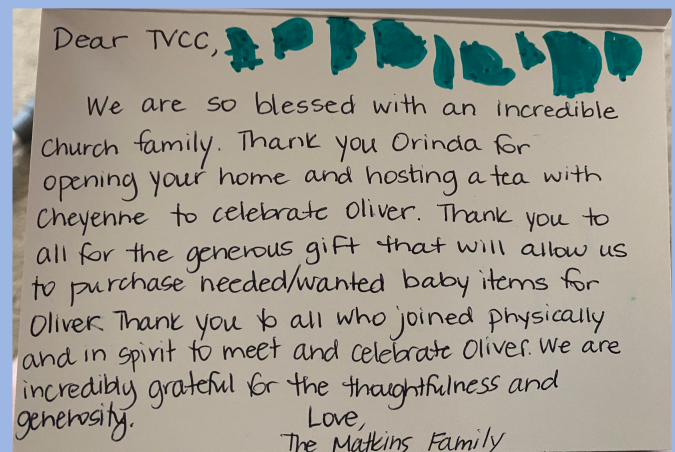 Dear TVCC,
We are so blessed with an incredible
church family. Thank you Orinda for
opening your home and hosting a tea with
Cheyenne to celebrate Oliver. Thank you to
all for the generous gift that will allow us
to purchase needed/wanted baby items for
Oliver. Thank you to all who joined physically
and in spirit to meet and celebrate Oliver. We are
incredibly grateful for the thoughtfulness and
generosity.
Love,
The Matkins Family